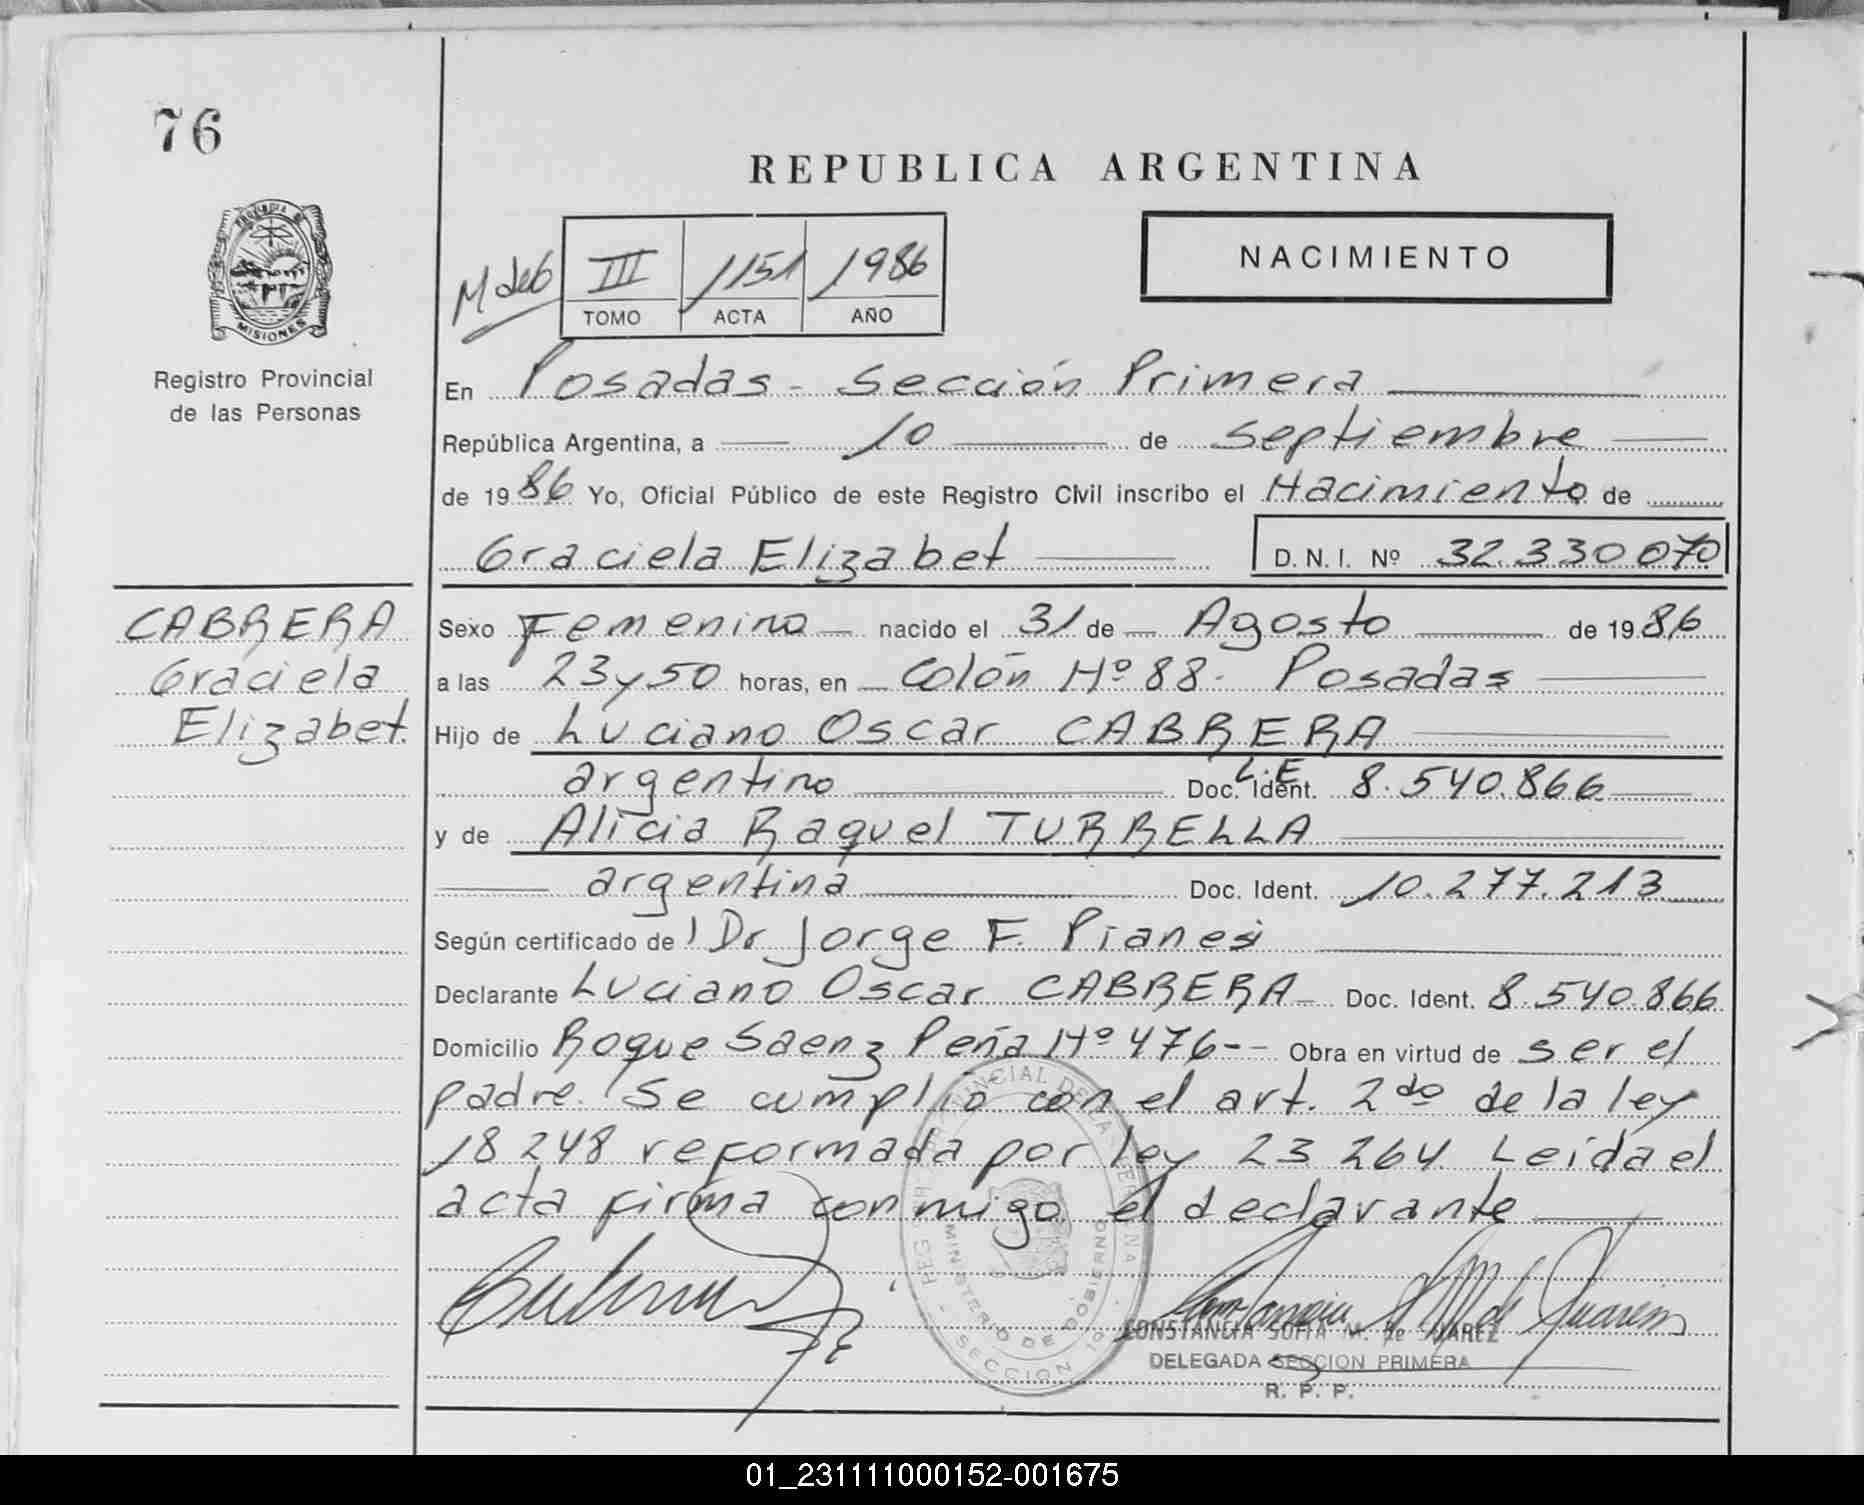 76
REPUBLICA ARGENTINA
PROVINCIA DE
MISIONES
Registro Provincial
de las Personas
NACIMIENTO
III 1151 1986
TOMO ACTA AÑO
En Posadas - Sección Primera
República Argentina, a 10 de Septiembre
de 1986 Yo, Oficial Público de este Registro Civil inscribo el Nacimiento de
Graciela Elizabet D. N. I. Nº 32.330.070
CABRERA
Graciela
Elizabet.
Sexo Femenino nacido el 31 de Agosto de 1986
a las 23 y 50 horas, en Colón Nº 88. Posadas
Hijo de Luciano Oscar CABRERA
argentino Doc. Ident. L.E 8.540.866
y de Alicia Raquel TURRELLA
argentina Doc. Ident. 10.277.213
Según certificado de Dr Jorge F. Pianesi
Declarante Luciano Oscar CABRERA Doc. Ident. 8.540.866
Domicilio Roque Saenz Peña Nº 476-- Obra en virtud de ser el
padre. Se cumplió con el art. 2do de la ley
18248 reformada por ley 23264 Leída el
acta firma conmigo el declarante
MINISTERIO DE GOBIERNO
SECCION 1º
CONSTANCIA SOFIA M. de
DELEGADA SECCION PRIMERA
R. P. P.
01_231111000152-001675